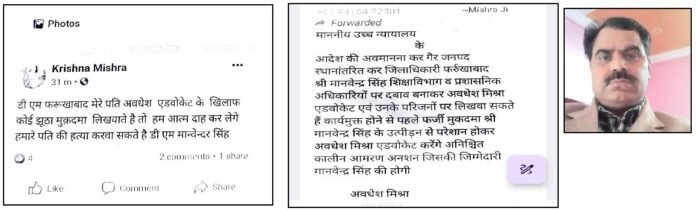 Photos
Krishna Mishra
31 m
डी एम फरूखाबाद मेरे पति अवधेश एडवोकेट के खिलाफ
कोई झूठा मुक़दमा लिखवाते है तो हम आत्म दाह कर लेगे
हमारे पति की हत्या करवा सकते है डी एम मान्वेन्दर सिंह
4
2 comments • 1 share
Like
Comment
Share
~Mishra Ji
Forwarded
माननीय उच्च न्यायालय
के
आदेश की अवमानना कर गैर जनपद
स्थानांतरित कर जिलाधिकारी फर्रुखाबाद
श्री मानवेन्द्र सिंह शिक्षाविभाग व प्रशासनिक
अधिकारियों पर दबाव बनाकर अवधेश मिश्रा
एडवोकेट एवं उनके परिजनों पर लिखवा सकते
हैं कार्यमुक्त होने से पहले फर्जी मुकदमा श्री
मानवेन्द्र सिंह के उत्पीड़न से परेशान होकर
अवधेश मिश्रा एडवोकेट करेंगे अनिश्चित
कालीन आमरण अनशन जिसकी जिम्मेदारी
मानवेन्द्र सिंह की होगी
अवधेश मिश्रा